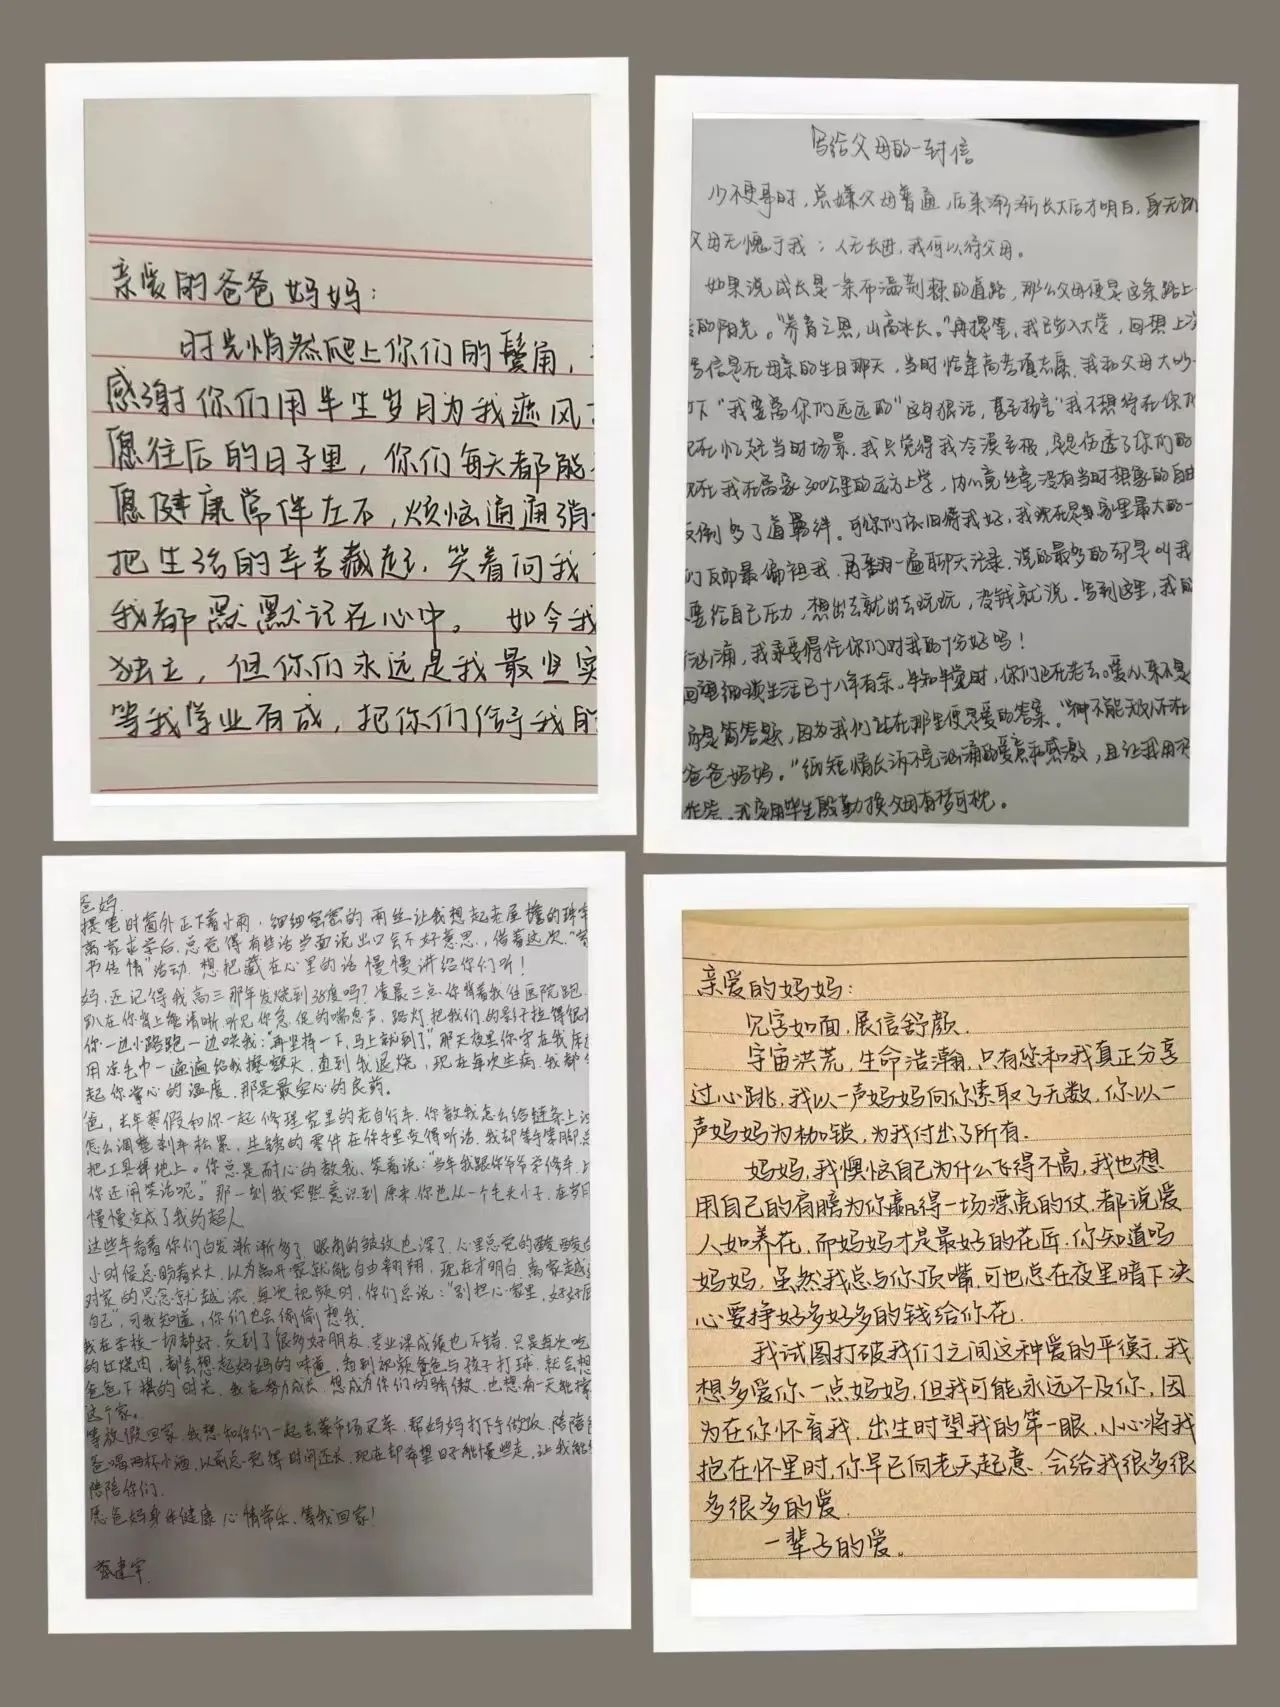 亲爱的爸爸妈妈：
时光悄然爬上你们的鬓角，
感谢你们用半生岁月为我遮风
愿往后的日子里，你们每天都能
愿健康常伴左右，烦恼通通消
把生活的辛苦藏起，笑着问我
我都默默记在心中。如今我
独立，但你们永远是我最坚实
等我学业有成，把你们给予我的
写给父母的一封信
少不更事时，总嫌父母普通，后来渐渐长大后才明白，身无
父母无愧于我；人无长进，我何以待父母。
如果说成长是一条布满荆棘的道路，那么父母便是这条路上
的阳光。“养育之恩，山高水长。”再提笔，我已步入大学，回想上次
写信是在母亲的生日那天，当时恰逢高考填志愿，我和父母大吵
下“我要离你们远远的”这句狠话，甚至扬言“我不想待在你
现在忆起当时场景，我只觉得我冷漠至极，总是伤透了你们的
现在我在离家300公里的远方上学，内心竟丝毫没有当时想象的自由
反倒多了道羁绊。可你们依旧待我好，我现在是家里最大的一
们反而最偏袒我，再翻一遍聊天记录，说的最多的都是叫我
要给自己压力，想出去就出去玩玩，没钱就说。写到这里，我的
汹涌，我承受得住你们对我的十分好吗！
回想细读生活已十八年有余。半知半觉时，你们已在老去。爱从来不是
而是简答题，因为我们站在那里便是爱的答案。“神不能无处不在
爸爸妈妈。”纸短情长诉不完汹涌的爱意和感激，且让我用
我定用毕生殷勤换父母有梦可枕。
爸妈：
提笔时窗外正下着小雨，细细密密的雨丝让我想起老屋檐的
离家求学后，总觉得有些话当面说出口会不好意思，借着这次“
书传情”活动，想把藏在心里的话慢慢讲给你们听！
妈，还记得我高三那年发烧到38度吗？凌晨三点你背着我往医院跑，
趴在你背上能清晰听见你急促的喘息声，路灯把我们的影子拉得很
你一边小路跑一边哄我：“再坚持一下，马上就到了”，那天夜里你守在我床
用凉毛巾一遍遍给我擦额头，直到我退烧，现在每次生病，我都
起你掌心的温度，那是最安心的良药。
爸，去年寒假和你一起修理家里的老自行车，你教我怎么给链条上
怎么调整刹车松紧，生锈的零件在你手里变得听话，我却笨手笨脚
把工具掉地上。你总是耐心的教我，笑着说：“当年我跟你爷爷学修车，
你还闹笑话呢。”那一刻我突然意识到原来你也从一个毛头小子，在岁月
慢慢变成了我的超人
这些年看着你们白发渐渐多了，眼角的皱纹也深了，心里总觉的酸酸
小时候总盼着长大，以为离开家就能自由翱翔，现在才明白，离家越
对家的思念就越浓，每次视频时，你们总说：“别担心家里，好好
自己”，可我知道，你们也会偷偷想我。
我在学校一切都好，交到了很多好朋友，专业课成绩也不错，只是每次吃
的红烧肉，都会想起妈妈的味道，看到视频爸爸与孩子打球，就会想
爸爸下棋的时光，我在努力成长，想成为你们的骄傲，也想有一天能撑
这个家。
等放假回家，我想和你们一起去菜市场买菜，帮妈妈打下手做饭，陪陪
爸喝两杯小酒，以前总觉得时间还长，现在却希望日子能慢些走，让我能
陪陪你们。
愿爸妈身体健康，心情常乐，等我回家！
蔡建宇
亲爱的妈妈：
见字如面，展信舒颜．
宇宙洪荒，生命浩瀚，只有您和我真正分享
过心跳，我以一声妈妈向你索取了无数，你以一
声妈妈为枷锁，为我付出了所有．
妈妈，我懊恼自己为什么飞得不高，我也想
用自己的肩膀为你赢得一场漂亮的仗，都说爱
人如养花，而妈妈才是最好的花匠，你知道吗
妈妈，虽然我总与你顶嘴，可也总在夜里暗下决
心要挣好多好多的钱给你花．
我试图打破我们之间这种爱的平衡，我
想多爱你一点妈妈，但我可能永远不及你，因
为在你怀育我，出生时望我的第一眼，小心将我
抱在怀里时，你早已向老天起意，会给我很多很
多很多的爱．
一辈子的爱。